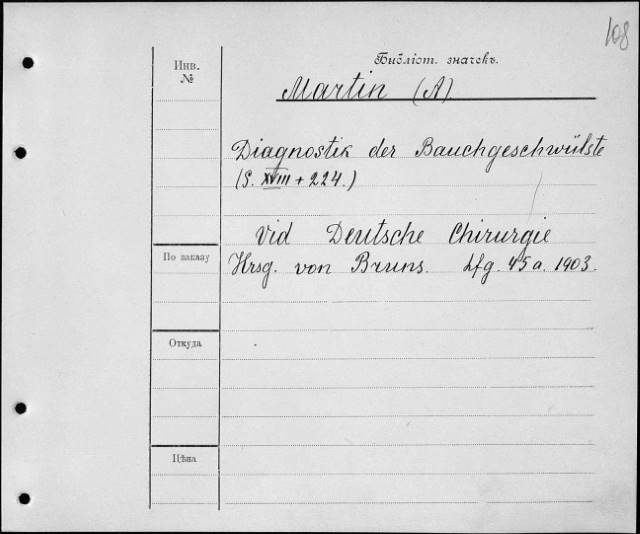 108
Библіот. значекъ.
Инв.
№
Martin (A).
Diagnostik der Bauchgeschwülste
(S. XVIII + 224.)
Vid Deutsche Chirurgie
По заказу
Hrsg. von Bruns. Lfg. 45a. 1903.
Откуда
Цѣна